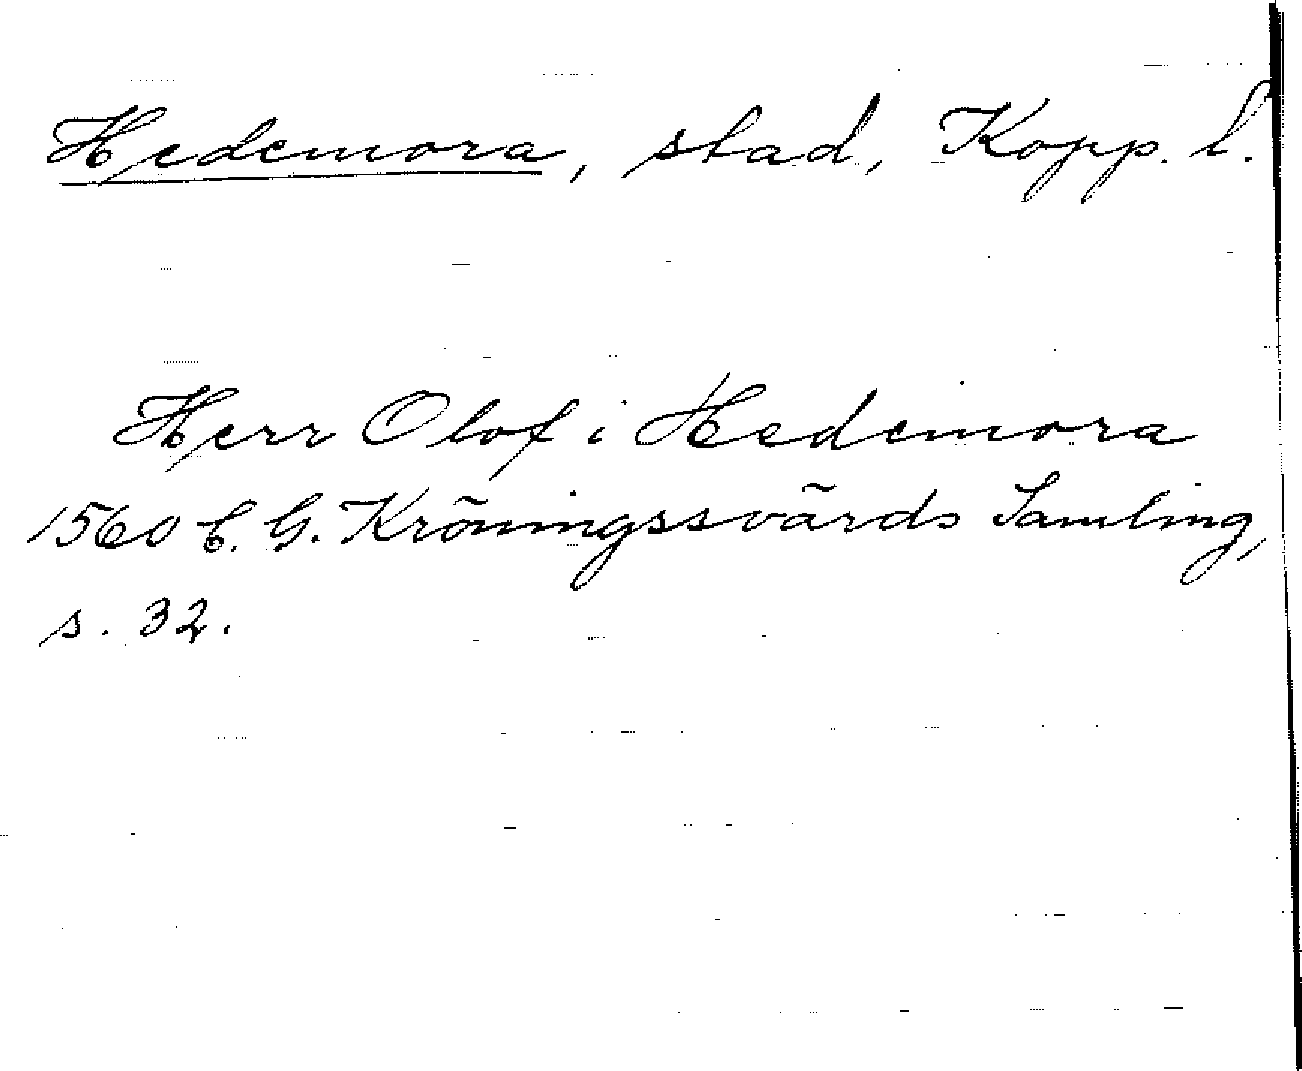 Hedemora, stad, Kopp. l.
Herr Olof i Hedemora
1560 C. G. Kröningssvärds Samling,
s. 32.